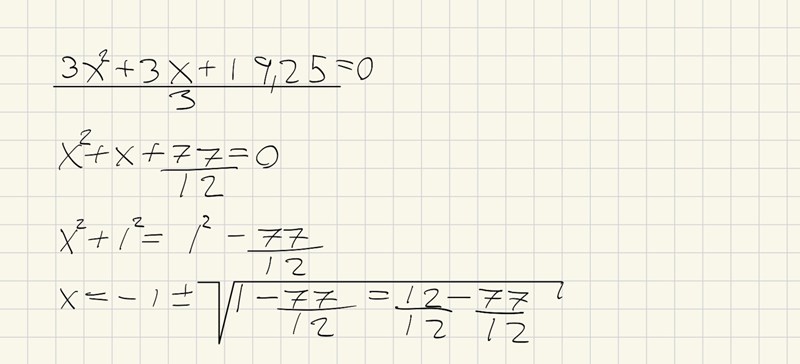 3x²+3x+19,25=0
3
x²+x+77/12=0
x²+1²= 1² - 77/12
x = -1 ± √1 - 77/12 = 12/12 - 77/12